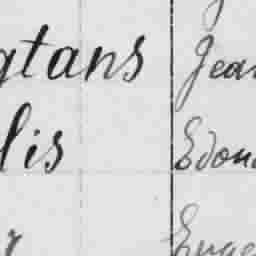 gtans Jean
lis Edoua
r Euge